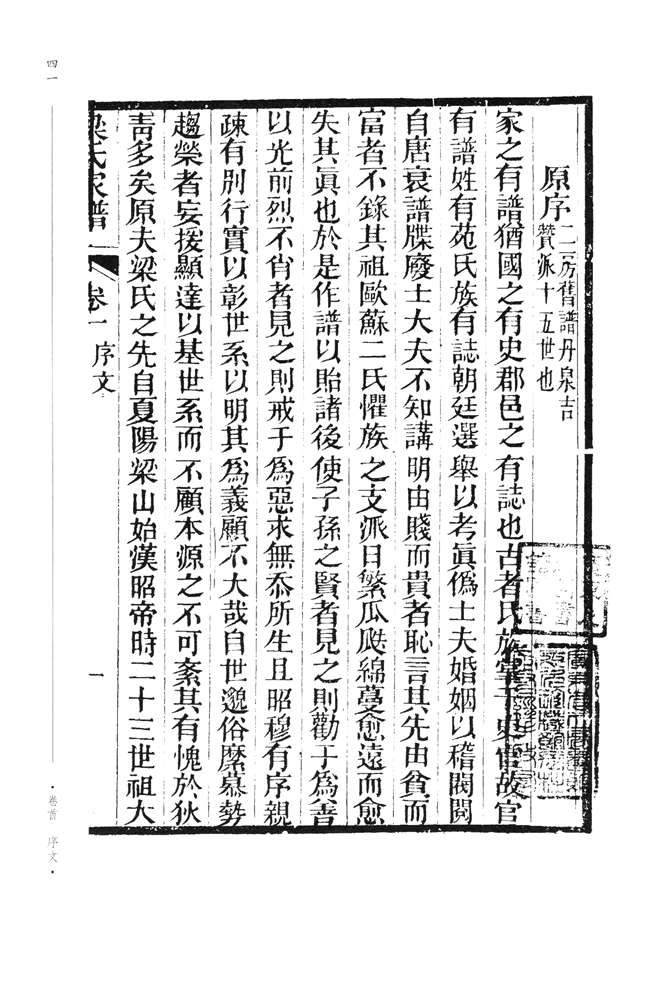 四一
原序 二房舊譜丹泉吉
贊派十五世也
家之有譜猶國之有史郡邑之有誌也古者氏族掌于史官故官
有譜姓有苑氏族有誌朝廷選舉以考眞僞士夫婚姻以稽閥閱
自唐衰譜牒廢士大夫不知講明由賤而貴者恥言其先由貧而
富者不錄其祖歐蘇二氏懼族之支派日繁瓜瓞綿蔓愈遠而愈
失其眞也於是作譜以貽諸後使子孫之賢者見之則勸于爲善
以光前烈不肖者見之則戒于爲惡求無忝所生且昭穆有序親
疎有別行實以彰世系以明其爲義顧不大哉自世邈俗縻慕勢
趨榮者妄援顯達以基世系而不顧本源之不可紊其有愧於狄
靑多矣原夫梁氏之先自夏陽梁山始漢昭帝時二十三世祖大
梁氏家譜 卷一 序文 一
·卷首 序文·